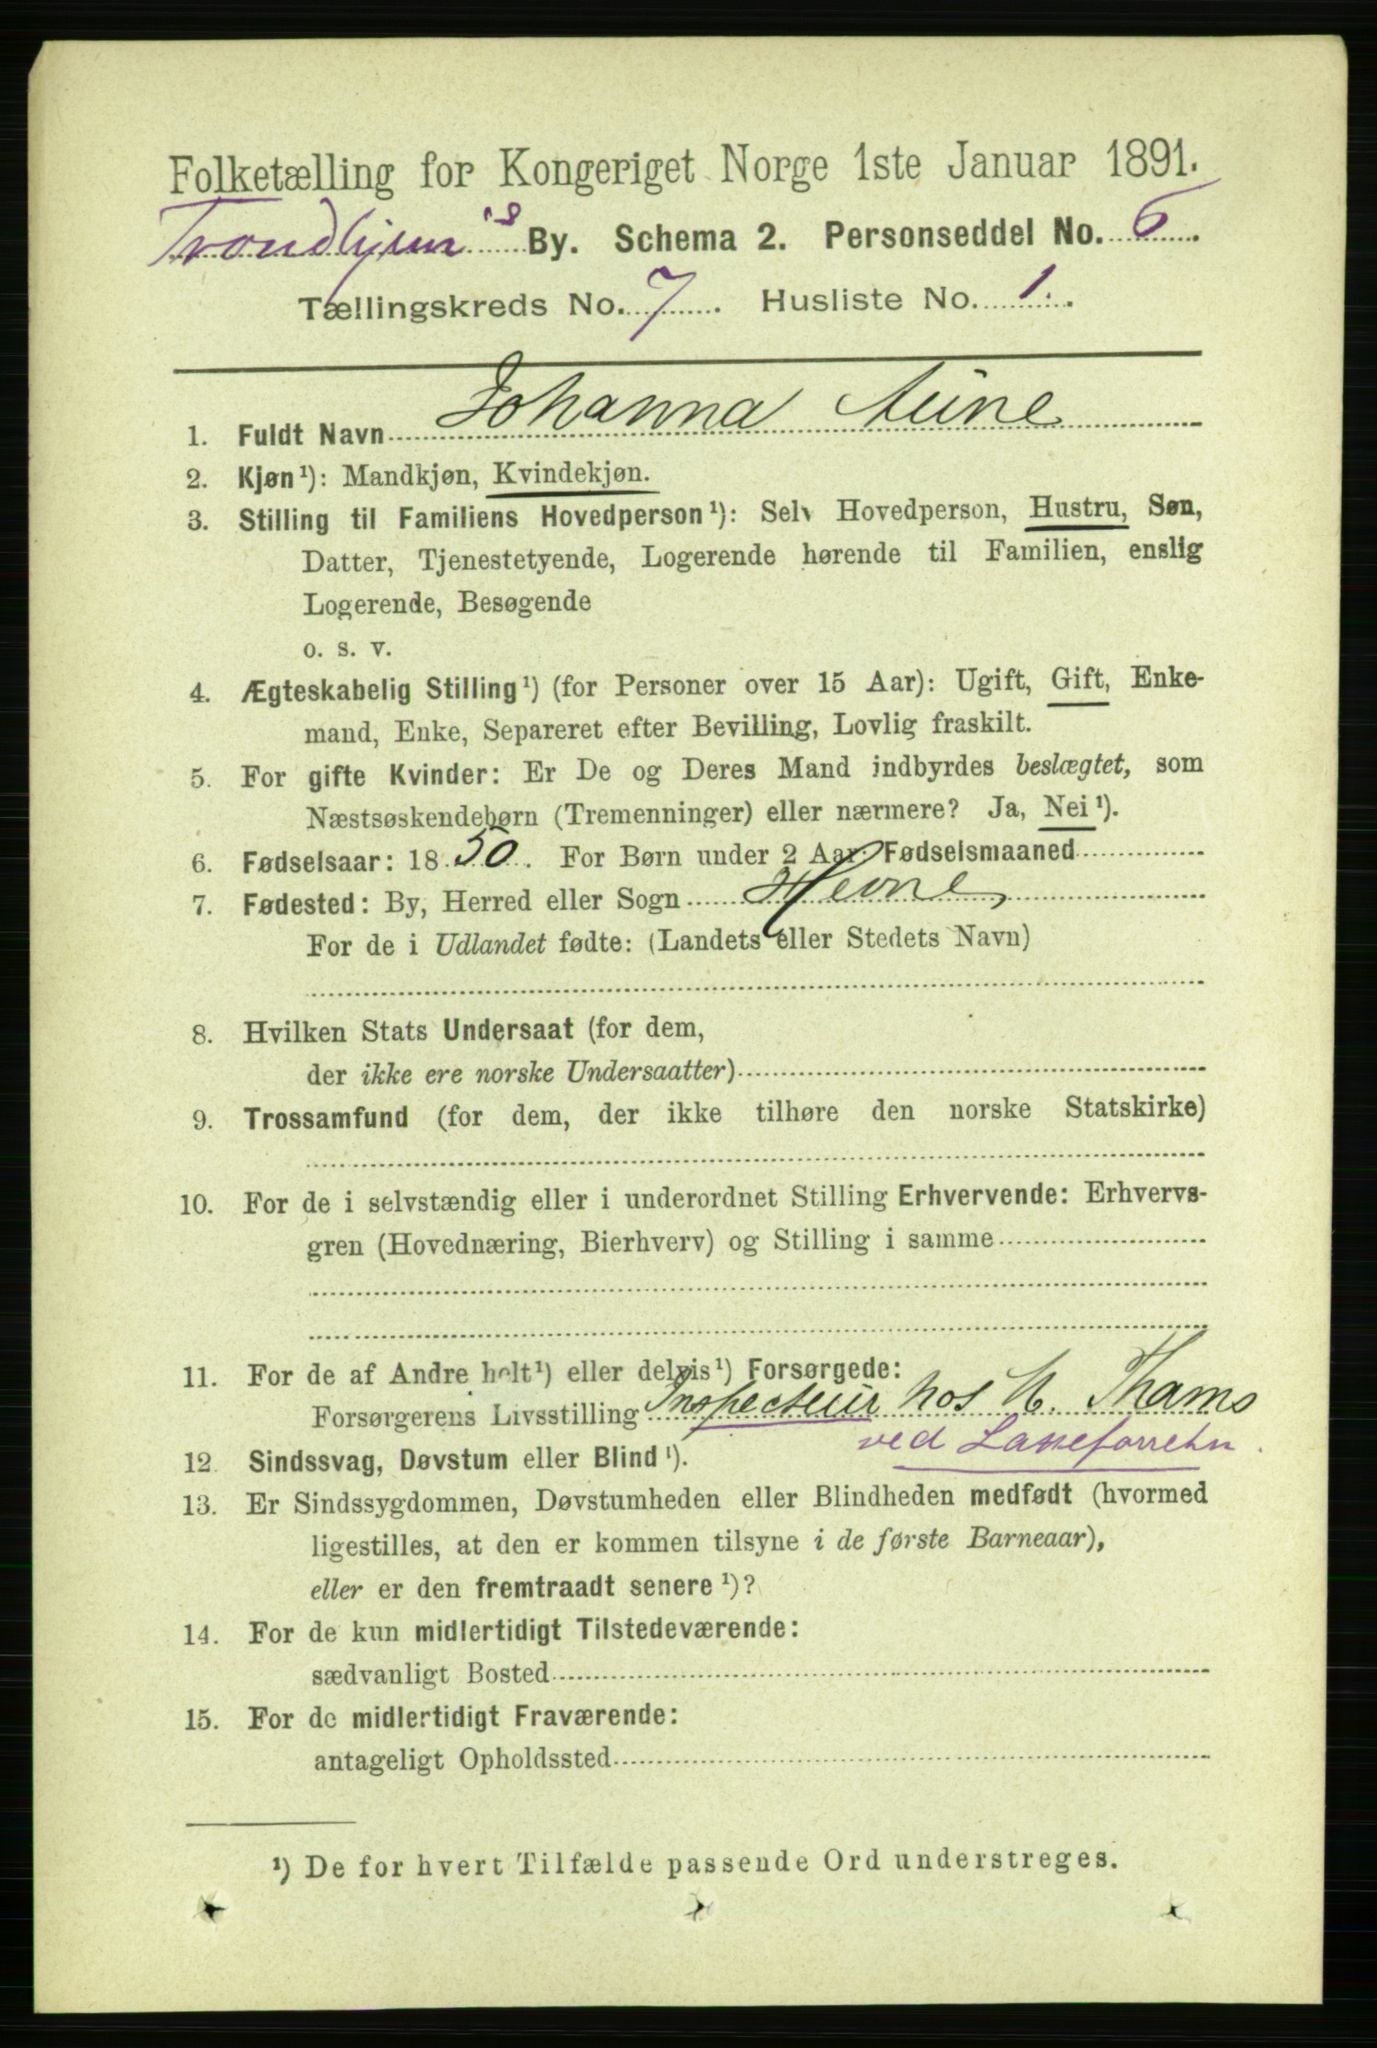 Folketælling for Kongeriget Norge 1ste Januar 1891.
Trondhjem's By. Schema 2. Personseddel No. 6
Tællingskreds No. 7. Husliste No. 1.
1. Fuldt Navn Johanna Aune
2. Kjøn¹): Mandkjøn, Kvindekjøn.
3. Stilling til Familiens Hovedperson¹): Selv Hovedperson, Hustru, Søn,
Datter, Tjenestetyende, Logerende hørende til Familien, enslig
Logerende, Besøgende
o. s. v.
4. Ægteskabelig Stilling¹) (for Personer over 15 Aar): Ugift, Gift, Enke-
mand, Enke, Separeret efter Bevilling, Lovlig fraskilt.
5. For gifte Kvinder: Er De og Deres Mand indbyrdes beslægtet, som
Næstsøskendebørn (Tremenninger) eller nærmere? Ja, Nei¹).
6. Fødselsaar: 1850. For Børn under 2 Aar: Fødselsmaaned
7. Fødested: By, Herred eller Sogn Hevne
For de i Udlandet fødte: (Landets eller Stedets Navn)
8. Hvilken Stats Undersaat (for dem,
der ikke ere norske Undersaatter)
9. Trossamfund (for dem, der ikke tilhøre den norske Statskirke)
10. For de i selvstændig eller i underordnet Stilling Erhvervende: Erhvervs-
gren (Hovednæring, Bierhverv) og Stilling i samme
11. For de af Andre helt¹) eller delvis¹) Forsørgede:
Forsørgerens Livsstilling Inspecteur hos M. Thams
ved
12. Sindssvag, Døvstum eller Blind¹).
13. Er Sindssygdommen, Døvstumheden eller Blindheden medfødt (hvormed
ligestilles, at den er kommen tilsyne i de første Barneaar),
eller er den fremtraadt senere¹)?
14. For de kun midlertidigt Tilstedeværende:
sædvanligt Bosted
15. For de midlertidigt Fraværende:
antageligt Opholdssted
¹) De for hvert Tilfælde passende Ord understreges.